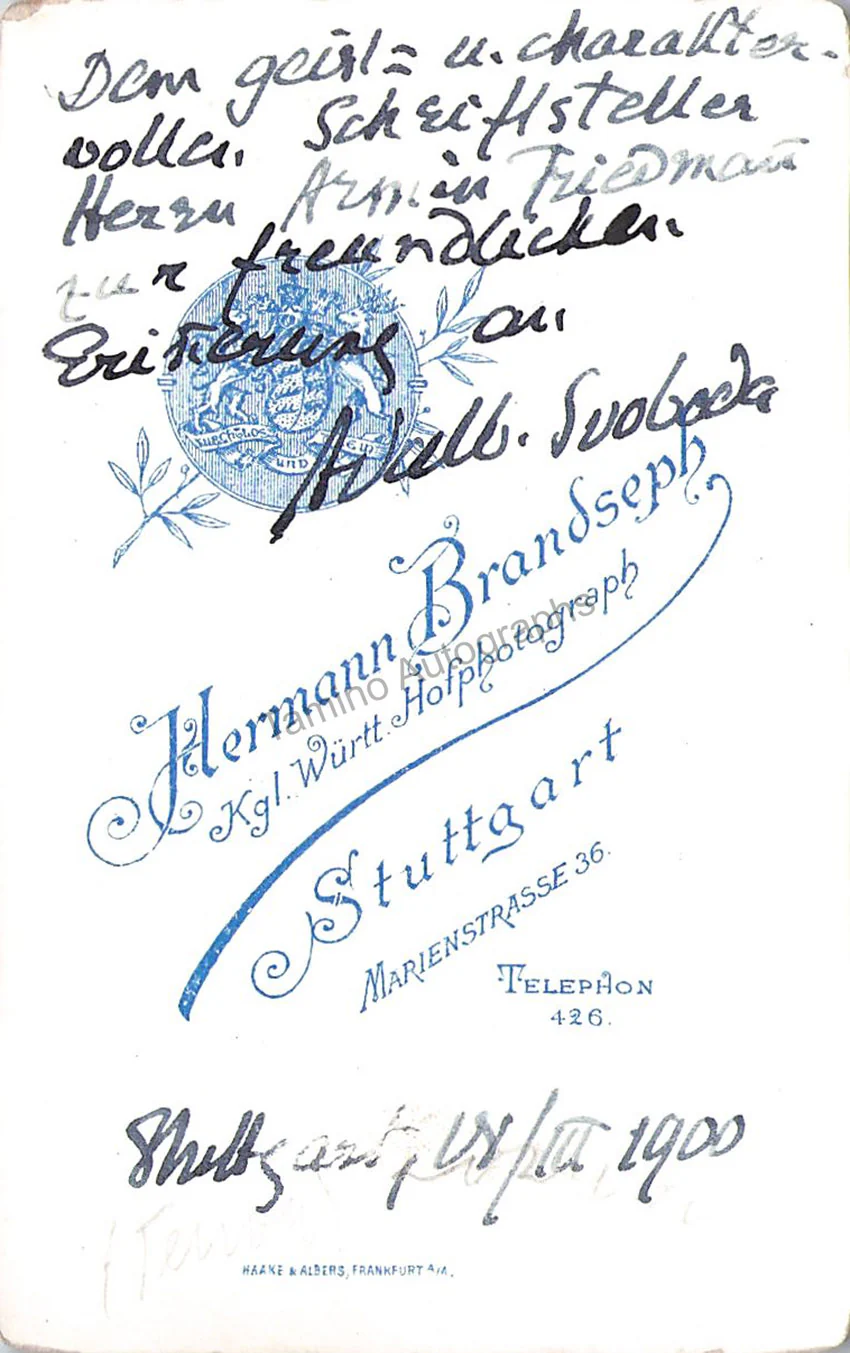 Dem geist= u. charakter-
vollen Schriftsteller
Herrn Armin Friedmann
zur freundlichen
Erinnerung an
Adalb. Svoboda
FURCHTLOS UND
Hermann Brandseph
Kgl. Württ. Hofphotograph
Stuttgart
MARIENSTRASSE 36.
TELEPHON
426.
Tamino Autographs
Stuttgart, /III 1900
HAAKE & ALBERS, FRANKFURT A/M.